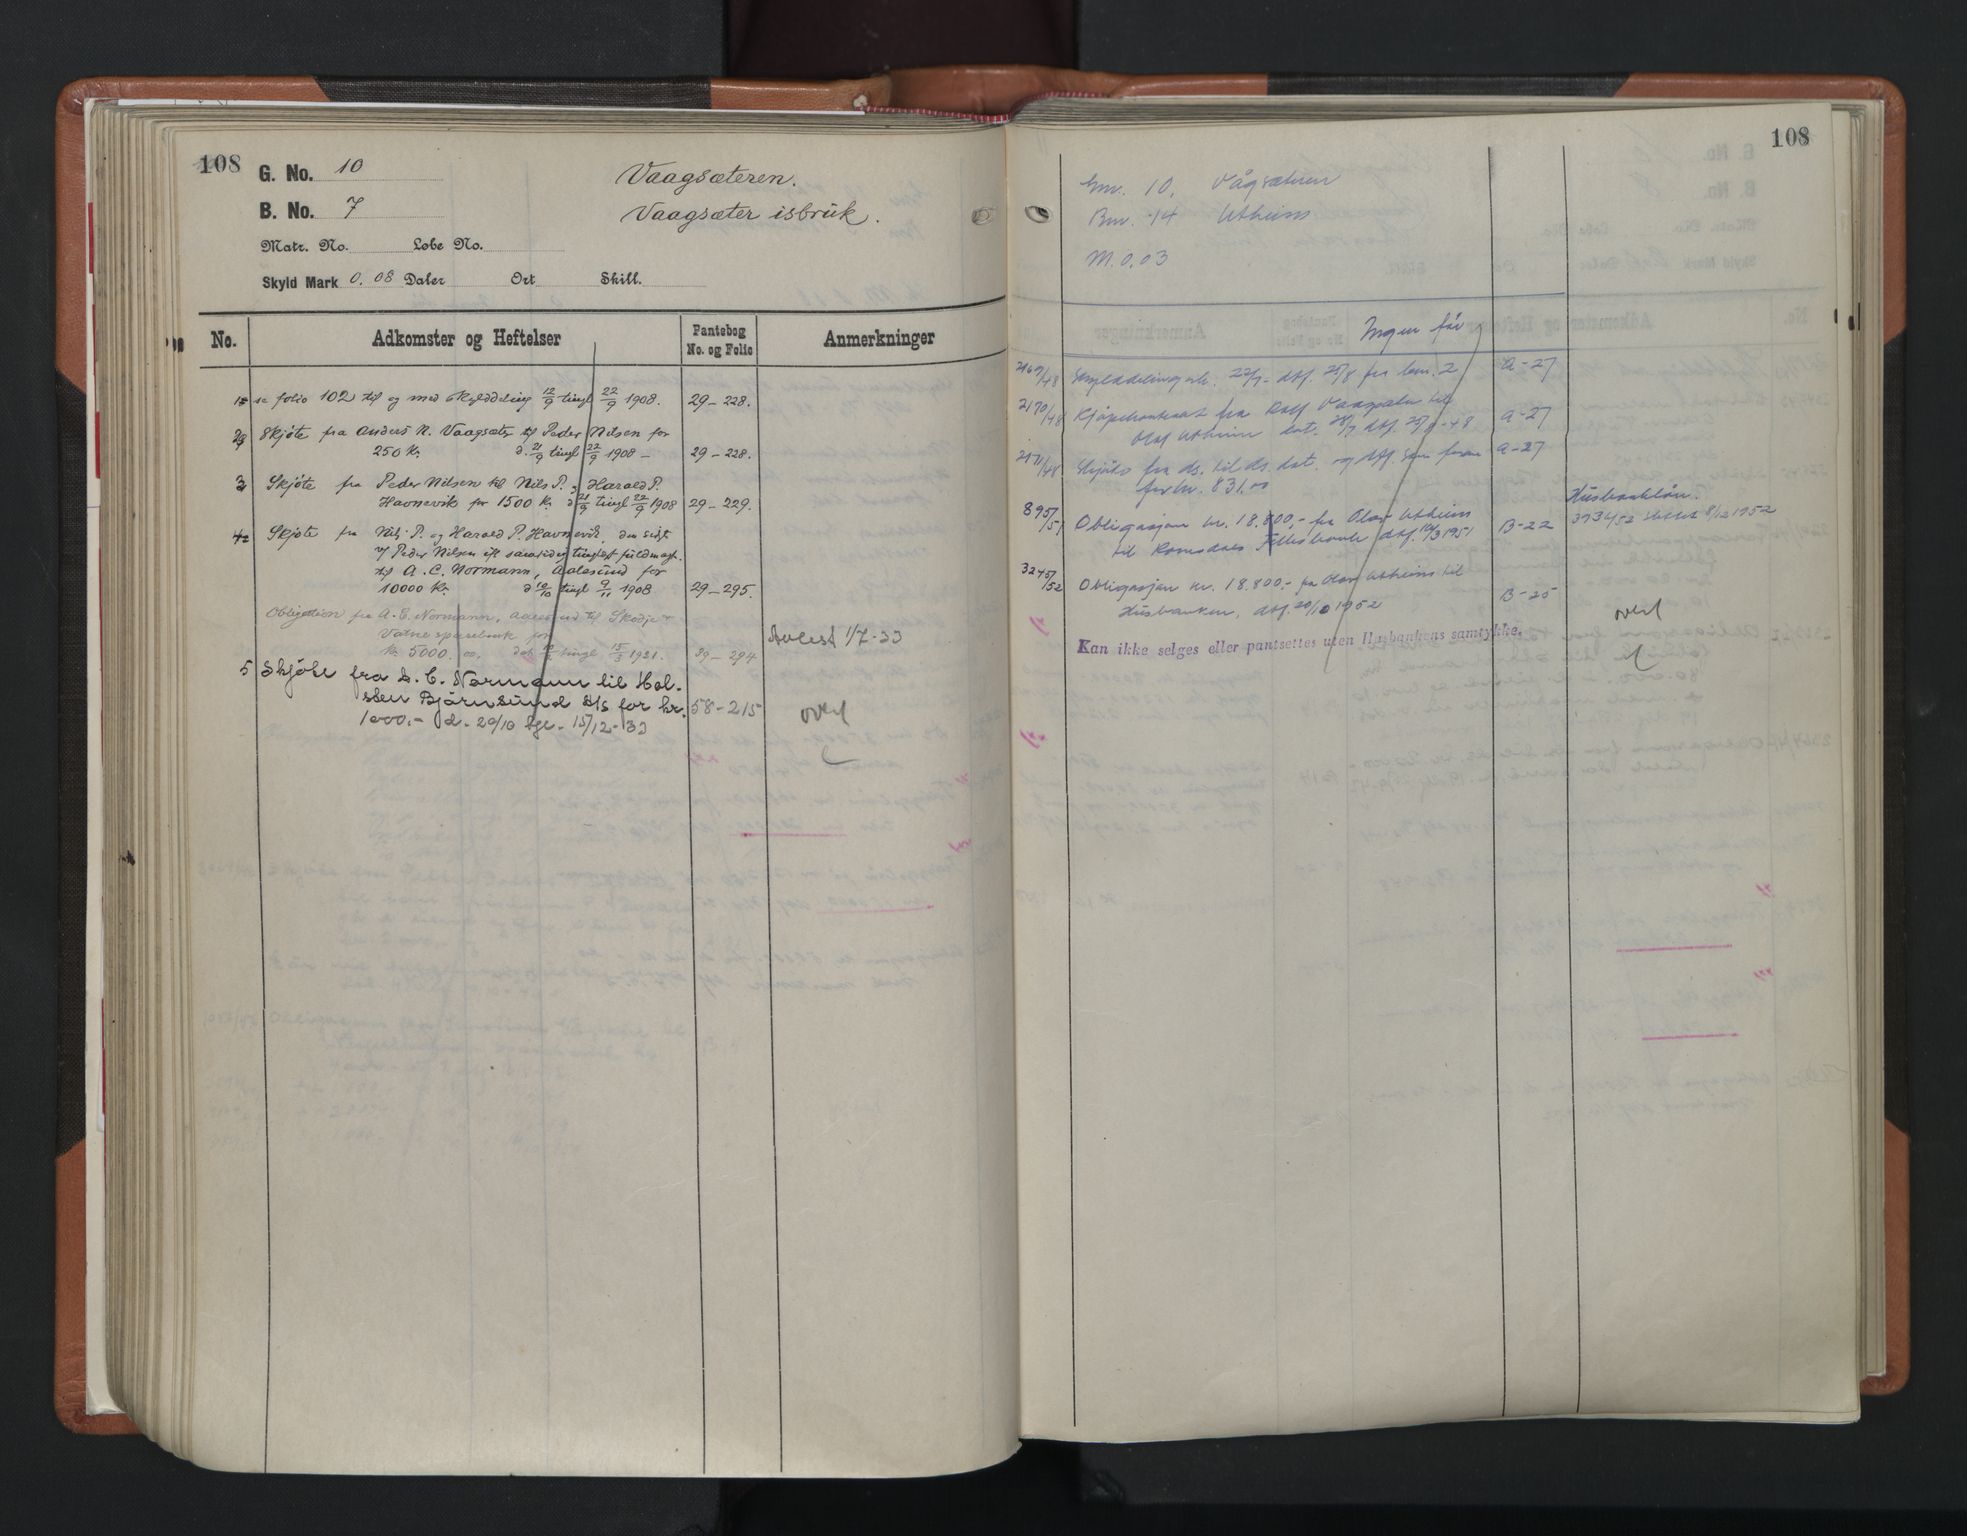 108
G. No. 10
Vaagsæteren.
B. No. 7
Vaagsæter isbruk.
Matr. No. Løbe No.
Skyld Mark 0.08 Daler Ort Skill.
No. Adkomster og Heftelser Pantebog No. og Folio Anmerkninger
1 se folio 102 til og med skylddeling 12/9 tingl 22/9 1908. 29-228.
2 Skjøte fra Anders N. Vaagsæter til Peder Nilsen for
250 Kr. d. 21/9 tingl 22/9 1908 - 29-228.
3 Skjøte fra Peder Nilsen til Nils P. og Harald P.
Havnevik for 1500 Kr. d 21/9 tingl 22/9 1908 29-229.
4 Skjøte fra Nils P. og Harald P. Havnevik, den sidste
v/ Peder Nilsen eft samtidig tinglæst fuldmagt.
til A. C. Normann, Aalesund for
10000 Kr. d 10/10 tingl 9/11 1908 29-295.
Obligation fra A. C. Normann, Aalesund til Skodje &
Vatne sparebank for
Kr. 5000.00, dat tingl 15/3 1921. 39-294
Avlest 1/7-33
5 Skjöte fra A. C. Normann til Hol-
sten Björnsund A/S for kr. 58-215
1000.- d. 20/10 tgl. 15/12-33
overf
108
Gnr. 10, Vågsætren
Bnr. 14 Utheim
M. 0.03
Ingen før
2169/48 Skylddeling avh. 22/7- dbf. 25/8 fra bnr. 2 A-27
2170/48 Kjøpekontrakt fra Rolf Vaagsæter til
Olav Utheim dat. 28/7 dbf. 25/8-48 A-27
2171/48 Skjöte fra ds. til ds. dat. og dbf. som foran A-27
for kr. 831.00
895/51 Obligasjon kr. 18.800,- fra Olav Utheim
til Romsdals Fellesbank dbf. 14/3 1951 B-22
Husbanklån.
3934/52 slettet 8/12 1952
3245/52 Obligasjon kr. 18.800.- fra Olav Utheim til
Husbanken, dbf. 20/10 1952 B-25
overf
Kan ikke selges eller pantsettes uten Husbankens samtykke.